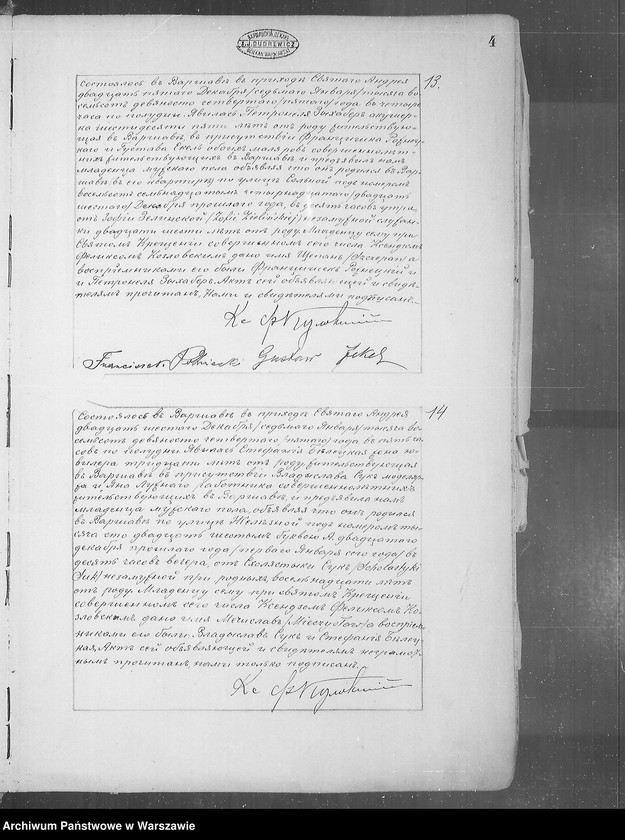 4
13.
Состоялось въ Варшавѣ въ приходѣ Святаго Андрея
двадцать пятаго Декабря /седьмаго Января/ тысяча во
семсотъ девяносто четвертаго /пятаго/ года въ четыре
часа по полудни. Явилась Петронеля Зыхаберъ акушер-
ка шестидесяти пяти лѣтъ отъ роду жительствую-
щая въ Варшавѣ, въ присутствіи Францишка
и Густава обоихъ маляровъ совершеннолѣт-
нихъ жительствующихъ въ Варшавѣ и предъявила намъ
младенца мужскаго пола объявляя что онъ родился въ Вар-
шавѣ въ его квартирѣ по улицѣ Сольной подъ номеромъ
восемьсотъ семьнадцатымъ четырнадцатаго /двадцать
шестаго/ Декабря прошлаго года, въ десять часовъ утра,
отъ Зофіи Зелинской /Zofii Zielińskiej/ незамужной служан-
ки двадцати шести лѣтъ отъ роду. Младенцу сему при
Святомъ Крещеніи совершенномъ сего числа Ксендзомъ
Феликсомъ Козловскимъ дано имя Щепанъ а
воспріемниками его были Францишекъ и
и Петронеля Зыхаберъ. Актъ сей объявляющей и свидѣ-
телямъ прочитанъ, Нами и свидѣтелями подписанъ.
Кс
Franciszek Gustaw Jekel
14
Состоялось въ Варшавѣ въ приходѣ Святаго Андрея
двадцать шестаго Декабря /седьмаго Января/ тысяча во
семьсотъ девяносто четвертаго /пятаго/ года въ пять ча-
совъ по полудни. Явилась Стефанія Бѣлецкая жена ю-
велера тридцати лѣтъ отъ роду, жительствующая
въ Варшавѣ въ присутствіи Владыслава Сукъ
и Яна работника совершеннолѣтнихъ
жительствующихъ въ Варшавѣ, и предъявила намъ
младенца мужскаго пола, объявляя что онъ родился
въ Варшавѣ по улицѣ Желѣзной подъ номеромъ ты-
сяча сто двадцать шестымъ буквою А. двадцатаго
декабря прошлаго года /перваго Января сего года/ въ
десять часовъ вечера, отъ Схоластыки Сукъ /Scholastyki
Suk/ незамужной при родныхъ восемьнадцати лѣтъ
отъ роду. Младенцу сему при святомъ Крещеніи
совершенномъ сего числа Ксендзомъ Феликсомъ Ко-
зловскимъ дано имя Мечиславъ /Mieczysław/ а воспріем-
никами его были, Владыславъ Сукъ и Стефанія Бѣлец-
кая. Актъ сей объявляющей и свидѣтелямъ неграмот-
нымъ прочитанъ, нами только подписанъ.
Кс
Archiwum Państwowe w Warszawie